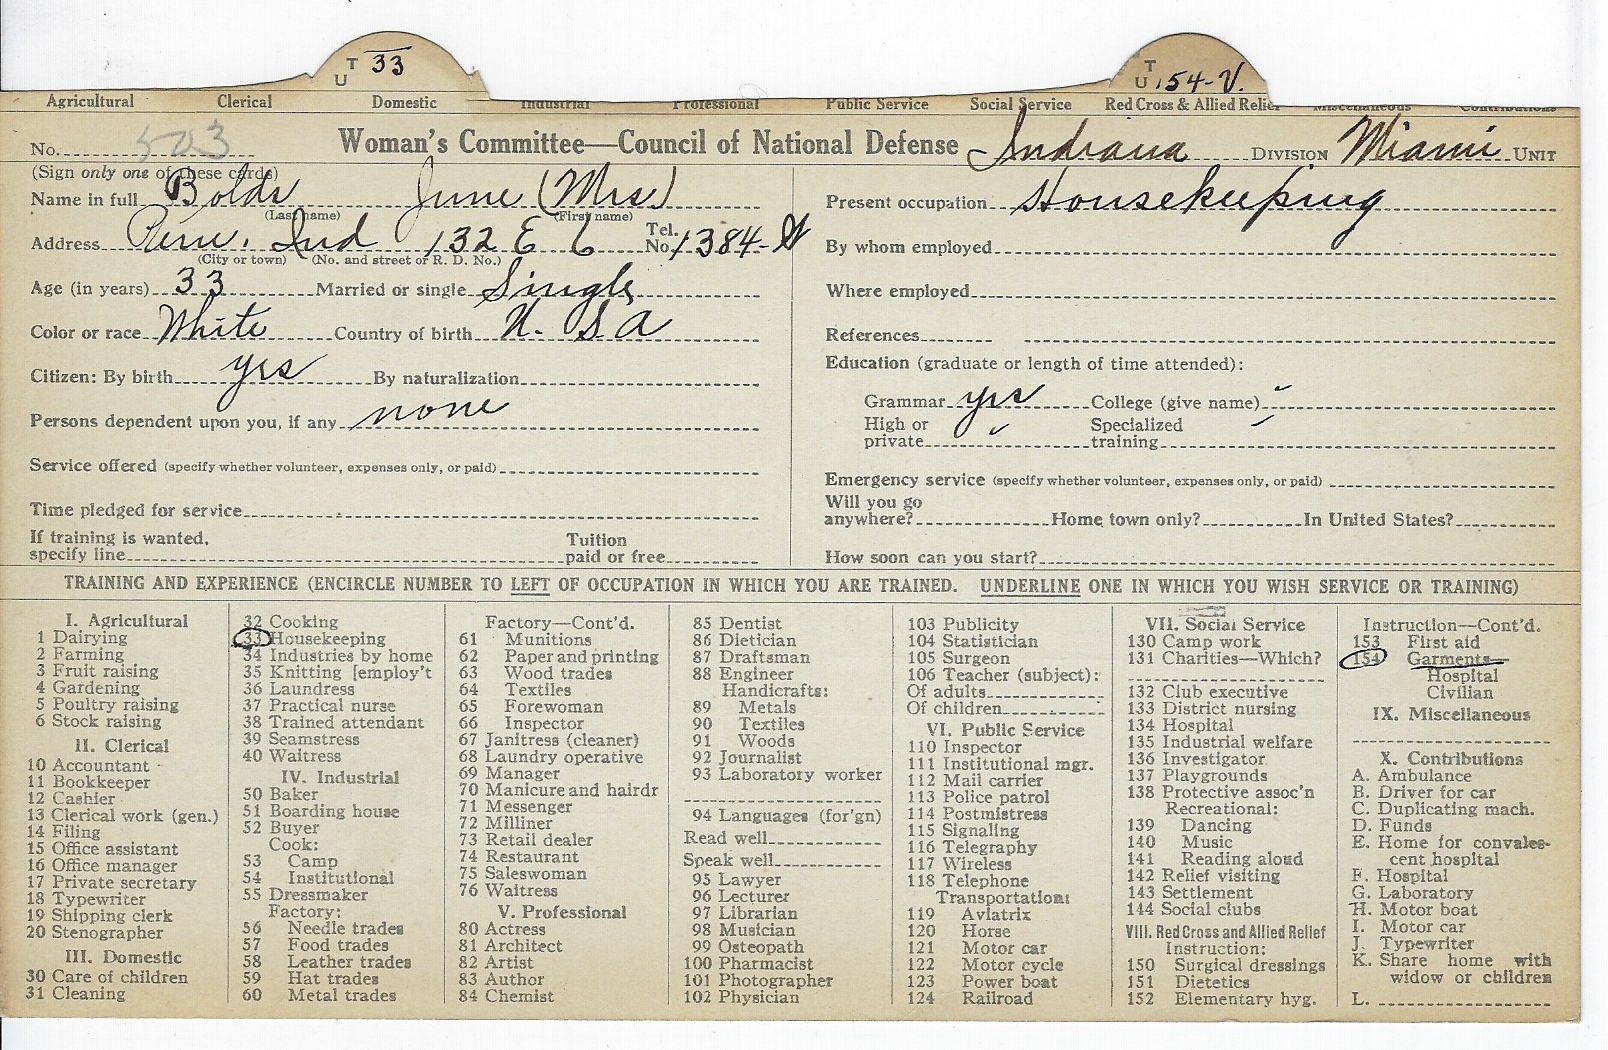 T U 33
T U 154-V.
Agricultural Clerical Domestic Industrial Professional Public Service Social Service Red Cross & Allied Relief Miscellaneous Contributions
No. 503 Woman's Committee—Council of National Defense Indiana DIVISION Miami UNIT
(Sign only one of these cards)
Name in full Bolds June (Mrs.)
(Last name) (First name)
Address Peru. Ind 132 E 6 Tel. No. 1384-
(City or town) (No. and street or R. D. No.)
Age (in years) 33 Married or single Single
Color or race White Country of birth U. S A
Citizen: By birth yes By naturalization
Persons dependent upon you, if any none
Service offered (specify whether volunteer, expenses only, or paid)
Time pledged for service
If training is wanted, specify line Tuition paid or free
Present occupation Housekeeping
By whom employed
Where employed
References
Education (graduate or length of time attended):
Grammar yes College (give name) "
High or private " Specialized training "
Emergency service (specify whether volunteer, expenses only, or paid)
Will you go anywhere? Home town only? In United States?
How soon can you start?
TRAINING AND EXPERIENCE (ENCIRCLE NUMBER TO LEFT OF OCCUPATION IN WHICH YOU ARE TRAINED. UNDERLINE ONE IN WHICH YOU WISH SERVICE OR TRAINING)
I. Agricultural
1 Dairying
2 Farming
3 Fruit raising
4 Gardening
5 Poultry raising
6 Stock raising
II. Clerical
10 Accountant
11 Bookkeeper
12 Cashier
13 Clerical work (gen.)
14 Filing
15 Office assistant
16 Office manager
17 Private secretary
18 Typewriter
19 Shipping clerk
20 Stenographer
III. Domestic
30 Care of children
31 Cleaning
32 Cooking
33 Housekeeping
34 Industries by home
35 Knitting [employ't
36 Laundress
37 Practical nurse
38 Trained attendant
39 Seamstress
40 Waitress
IV. Industrial
50 Baker
51 Boarding house
52 Buyer
Cook:
53 Camp
54 Institutional
55 Dressmaker
Factory:
56 Needle trades
57 Food trades
58 Leather trades
59 Hat trades
60 Metal trades
Factory—Cont'd.
61 Munitions
62 Paper and printing
63 Wood trades
64 Textiles
65 Forewoman
66 Inspector
67 Janitress (cleaner)
68 Laundry operative
69 Manager
70 Manicure and hairdr
71 Messenger
72 Milliner
73 Retail dealer
74 Restaurant
75 Saleswoman
76 Waitress
V. Professional
80 Actress
81 Architect
82 Artist
83 Author
84 Chemist
85 Dentist
86 Dietician
87 Draftsman
88 Engineer
Handicrafts:
89 Metals
90 Textiles
91 Woods
92 Journalist
93 Laboratory worker
94 Languages (for'gn)
Read well
Speak well
95 Lawyer
96 Lecturer
97 Librarian
98 Musician
99 Osteopath
100 Pharmacist
101 Photographer
102 Physician
103 Publicity
104 Statistician
105 Surgeon
106 Teacher (subject):
Of adults
Of children
VI. Public Service
110 Inspector
111 Institutional mgr.
112 Mail carrier
113 Police patrol
114 Postmistress
115 Signaling
116 Telegraphy
117 Wireless
118 Telephone
Transportation:
119 Aviatrix
120 Horse
121 Motor car
122 Motor cycle
123 Power boat
124 Railroad
VII. Social Service
130 Camp work
131 Charities—Which?
132 Club executive
133 District nursing
134 Hospital
135 Industrial welfare
136 Investigator
137 Playgrounds
138 Protective assoc'n
Recreational:
139 Dancing
140 Music
141 Reading aloud
142 Relief visiting
143 Settlement
144 Social clubs
VIII. Red Cross and Allied Relief
Instruction:
150 Surgical dressings
151 Dietetics
152 Elementary hyg.
Instruction—Cont'd.
153 First aid
154 Garments—
Hospital
Civilian
IX. Miscellaneous
X. Contributions
A. Ambulance
B. Driver for car
C. Duplicating mach.
D. Funds
E. Home for convalescent hospital
F. Hospital
G. Laboratory
H. Motor boat
I. Motor car
J. Typewriter
K. Share home with widow or children
L.